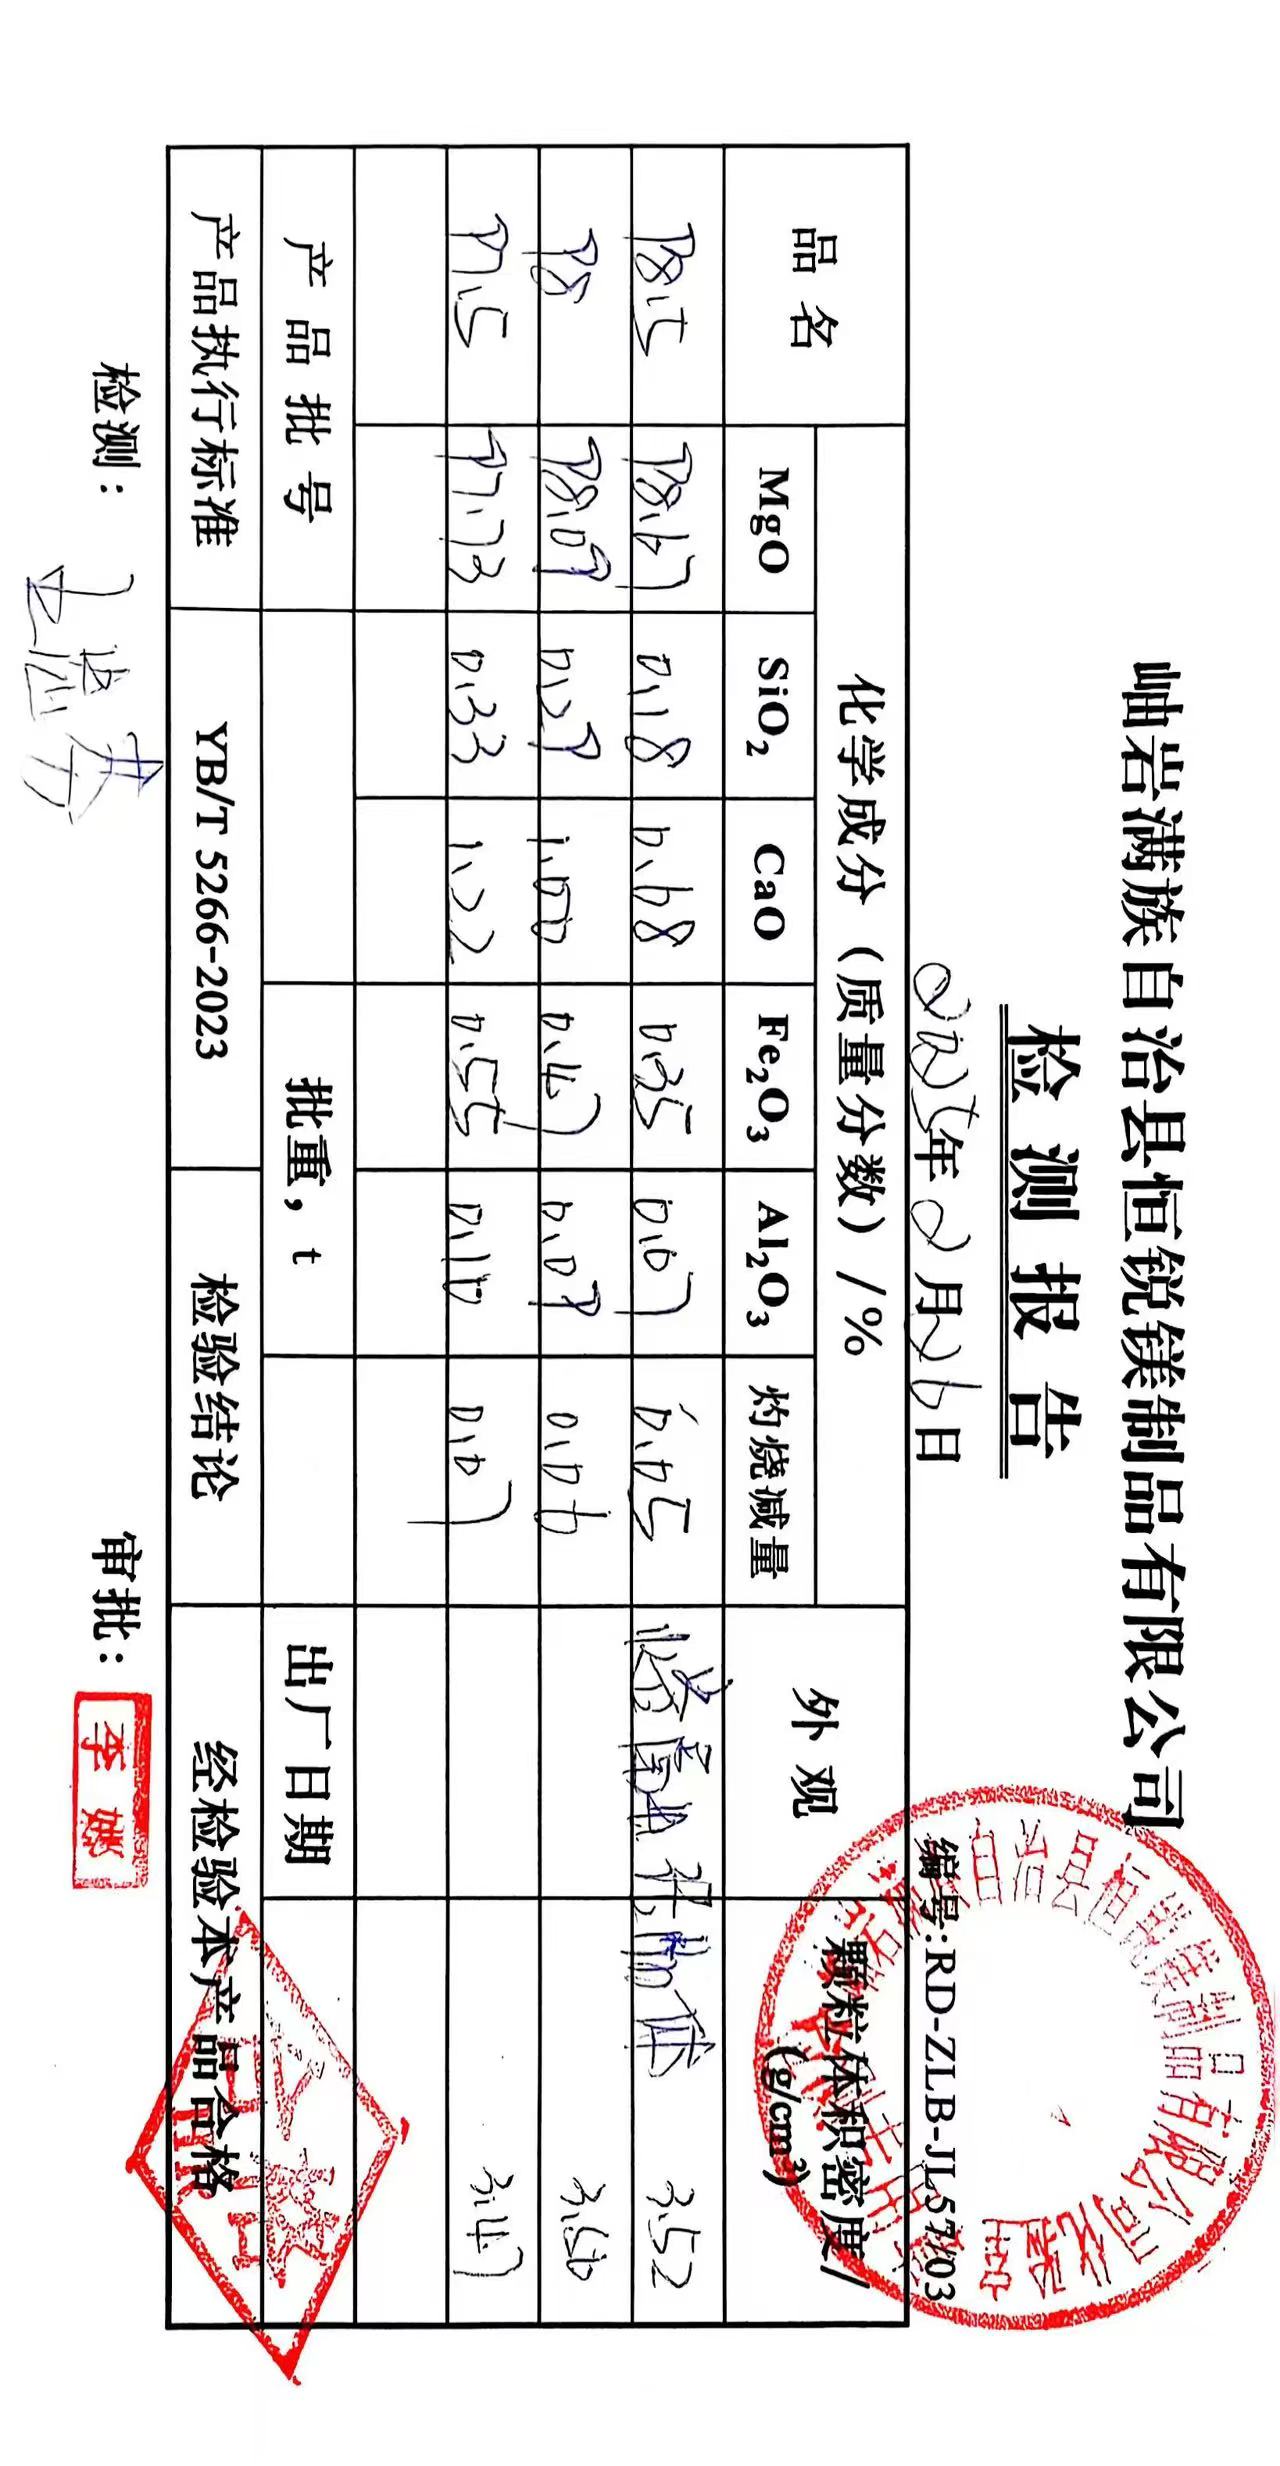 岫岩满族自治县恒锐镁制品有限公司
检测报告
2025年2月26日 编号:RD-ZLB-JL57/03
品名 化学成分（质量分数）/% 外观 颗粒体积密度/(g/cm³)
MgO SiO₂ CaO Fe₂O₃ Al₂O₃ 灼烧减量
98.5 98.67 0.18 0.68 0.35 0.07 0.05 3.52
98 98.09 0.29 1.00 0.47 0.09 0.06 3.50
97.5 97.73 0.33 1.22 0.55 0.10 0.07 3.47
产品批号 批重，t 出厂日期
产品执行标准 YB/T 5266-2023 检验结论 经检验本产品合格
检测： 审批：李
自治县恒锐镁制品有限公司化验